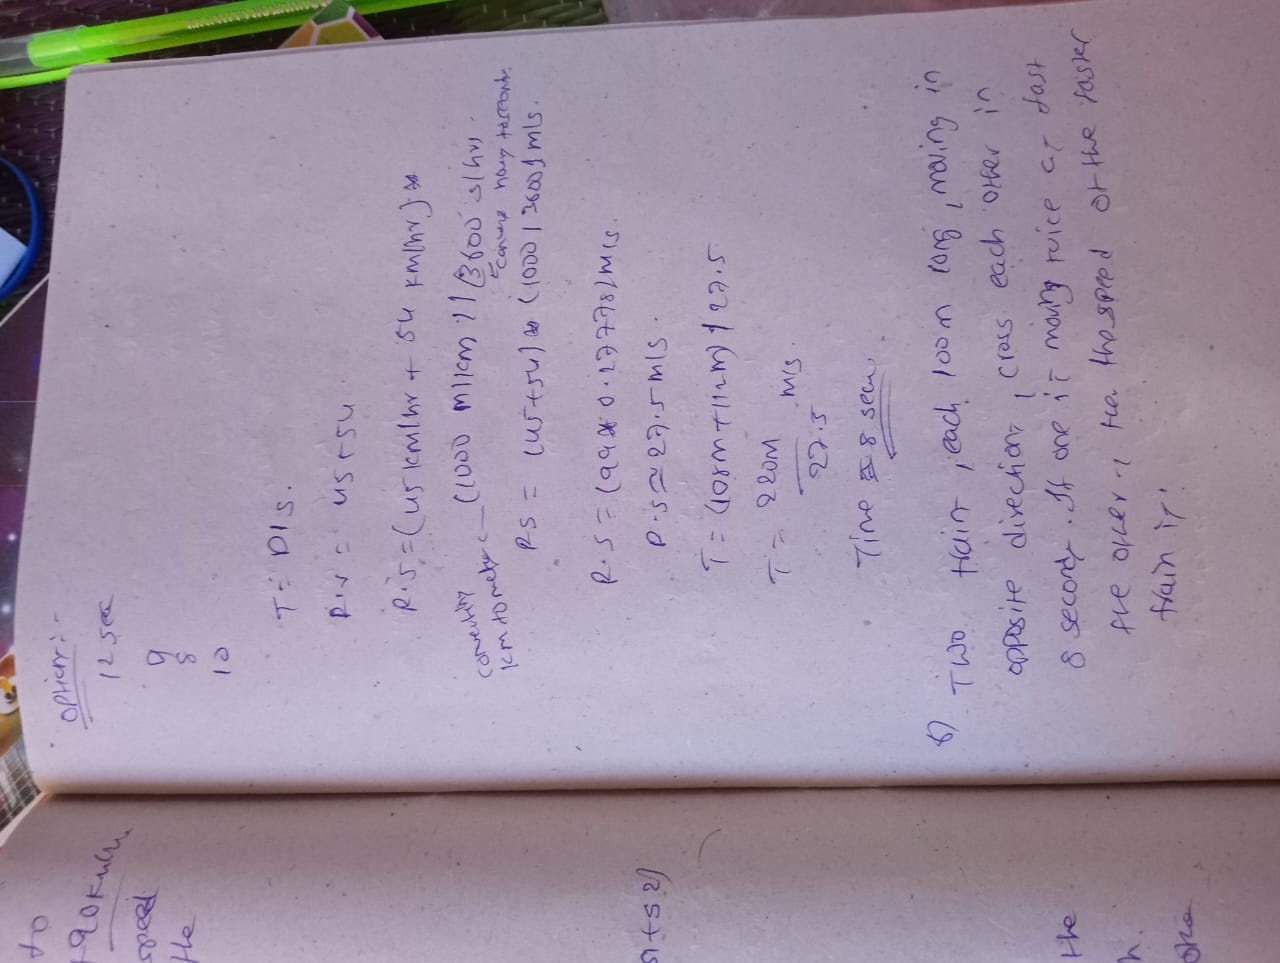 option:-
12 sec
9
8
10
T = D/S.
R.V = 45+54
R.S = (45 km/hr + 54 km/hr) *
converting km to meter ← (1000 m/1km)/(3600 s/hr).
convert hours to seconds.
RS = (45+54) * (1000/3600) m/s.
R.S = (99 * 0.27778) m/s.
R.S ≅ 27.5 m/s.
T = (108m+112m) / 27.5
T = 220M / 27.5 m/s.
Time ≅ 8 sec.
6) Two train, each 100m long, moving in
opposite direction, cross each other in
8 second. If one is moving twice as fast
the other, the speed of the faster
train is,
to
+90 km/hr
speed
the
s1+s2)
the
h.